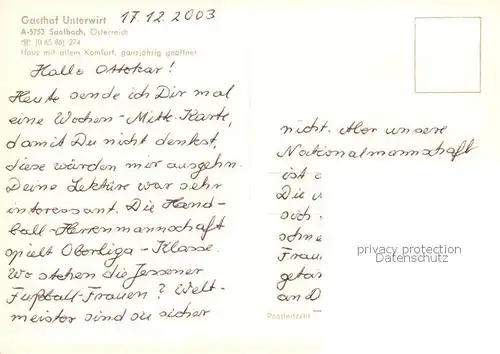 Gasthof Unterwirt 17.12.2003
A-5753 Saalbach, Österreich
☏ (0 65 86) 274
Haus mit allem Komfort, ganzjährig geöffnet
Hallo Ottokar!
Heute sende ich Dir mal
eine Wochen-Mitte-Karte,
damit Du nicht denkst,
diese würden mir ausgehn.
Deine Lektüre war sehr
interessant. Die Hand-
ball-Herrenmannschaft
spielt Oberliga-Klasse.
Wo stehen die Jessener
Fußball-Frauen? Welt-
meister sind sie sicher
nicht. Aber unsere
Nationalmannschaft
ist
Die
sich
schne
Frau
getan
an D
privacy protection
Datenschutz
Postleitzahl